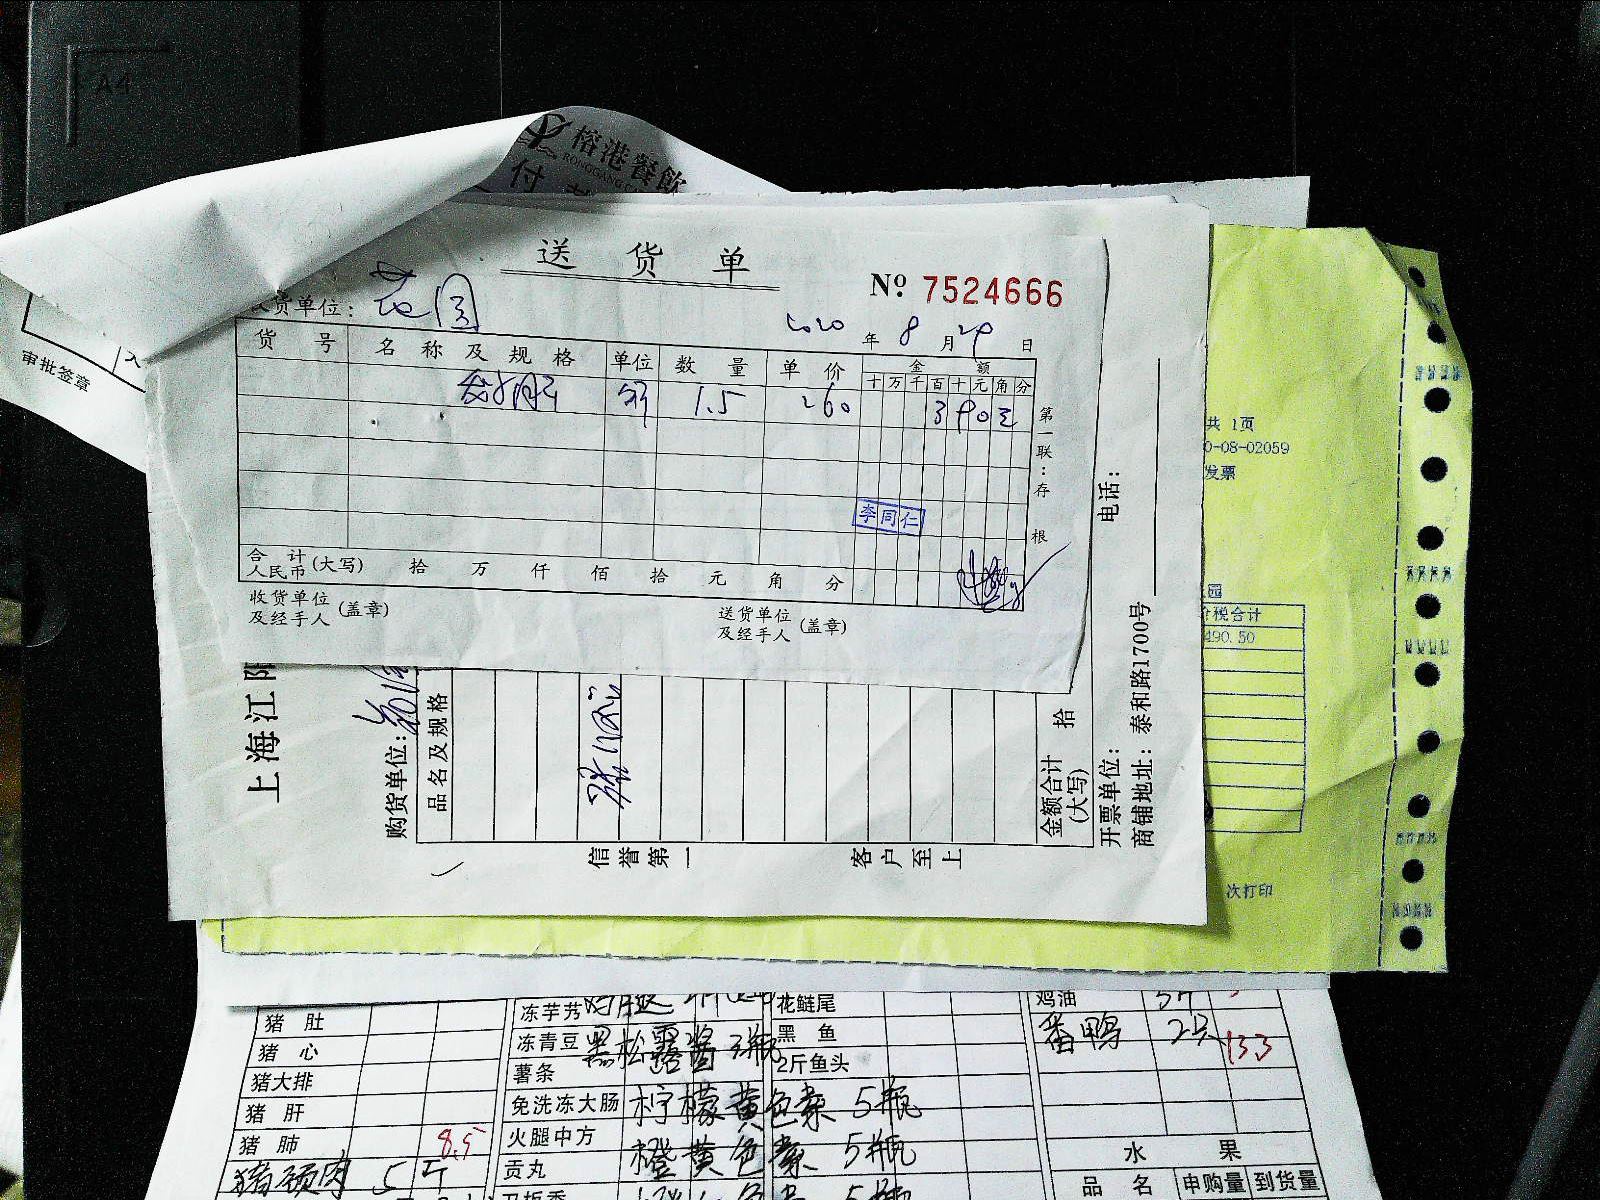 A4
榕港餐飲
付
审批签章
送 货 单
No 7524666
收货单位：花园
2020 年 8 月 29 日
货 号 名 称 及 规 格 单位 数 量 单 价 金 额
十 万 千 百 十 元 角 分
斤 1.5 260 3 9 0 0
第一联：存根
李同仁
合 计 人民币 (大写) 拾 万 仟 佰 拾 元 角 分
收货单位及经手人 (盖章) 送货单位及经手人 (盖章)
上海江阳
购货单位：
品名及规格
金额合计 (大写) 拾
信誉第一 客户至上
开票单位：
电话：
商铺地址：泰和路1700号
共 1页
0-08-02059
发票
园
价税合计
490.50
次打印
猪 肚
猪 心
猪大排
猪 肝
猪 肺 8.5
猪颈肉 5斤
冻芋艿
冻青豆 黑松露酱 3瓶
薯条
免洗冻大肠 柠檬黄色素 5瓶
火腿中方
贡丸 橙黄色素 5瓶
5瓶
花鲢尾
黑 鱼
2斤鱼头
鸡油 5斤
番鸭 2只 133
水 果
品 名 申购量 到货量